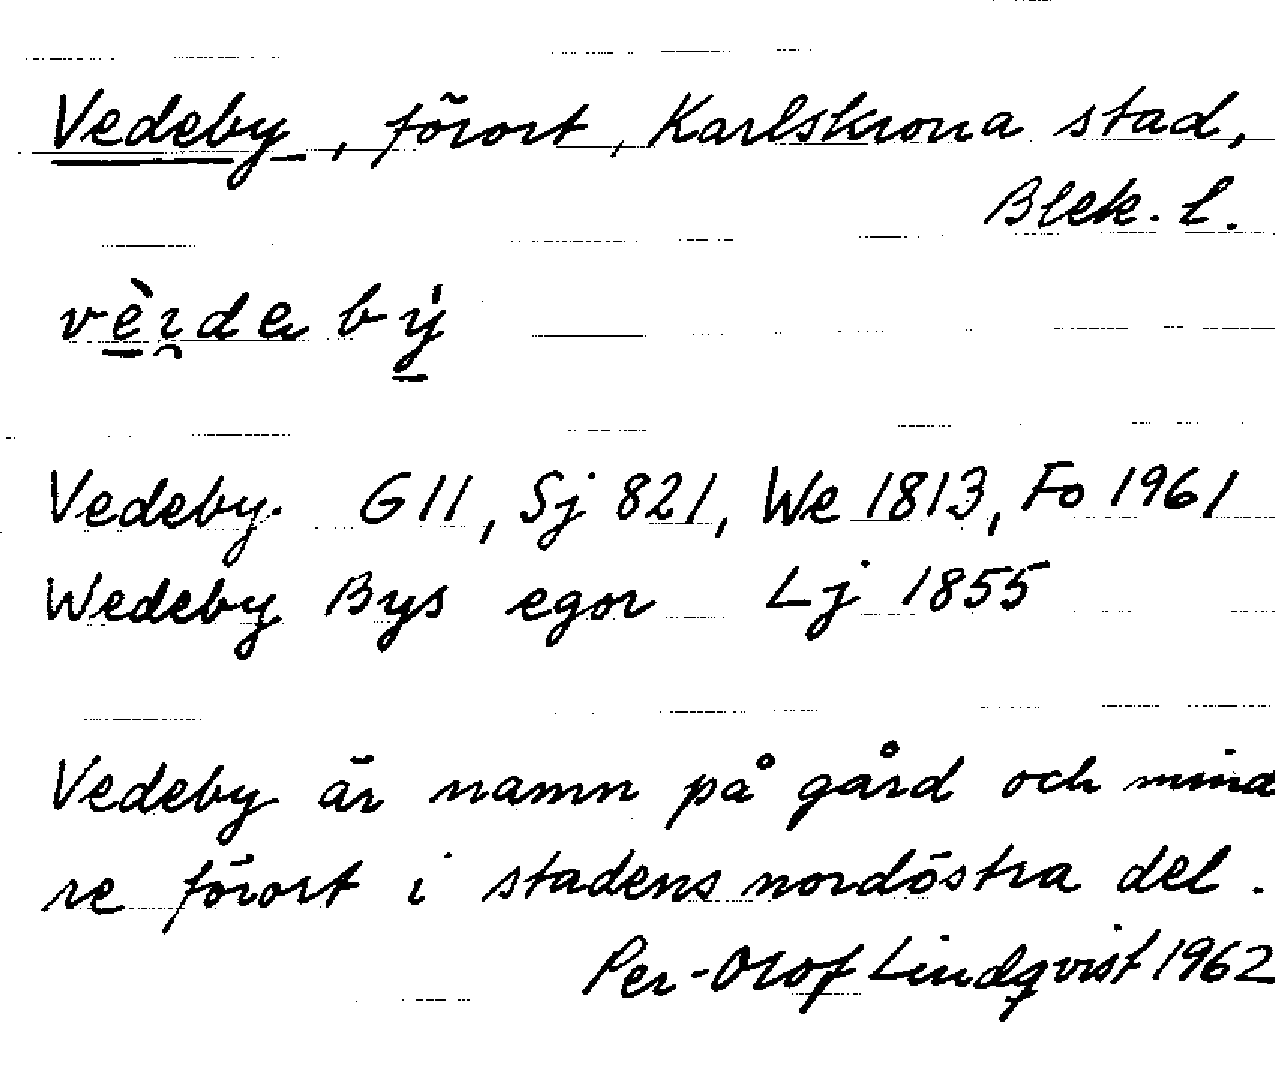 Vedeby, förort, Karlskrona stad,
Blek. l.
Vedeby. G 11, Sj 821, We 1813, Fo 1961
Wedeby Bys egor Lj 1855
Vedeby är namn på gård och mind
re förort i stadens nordöstra del.
Per-Olof Lindqvist 1962